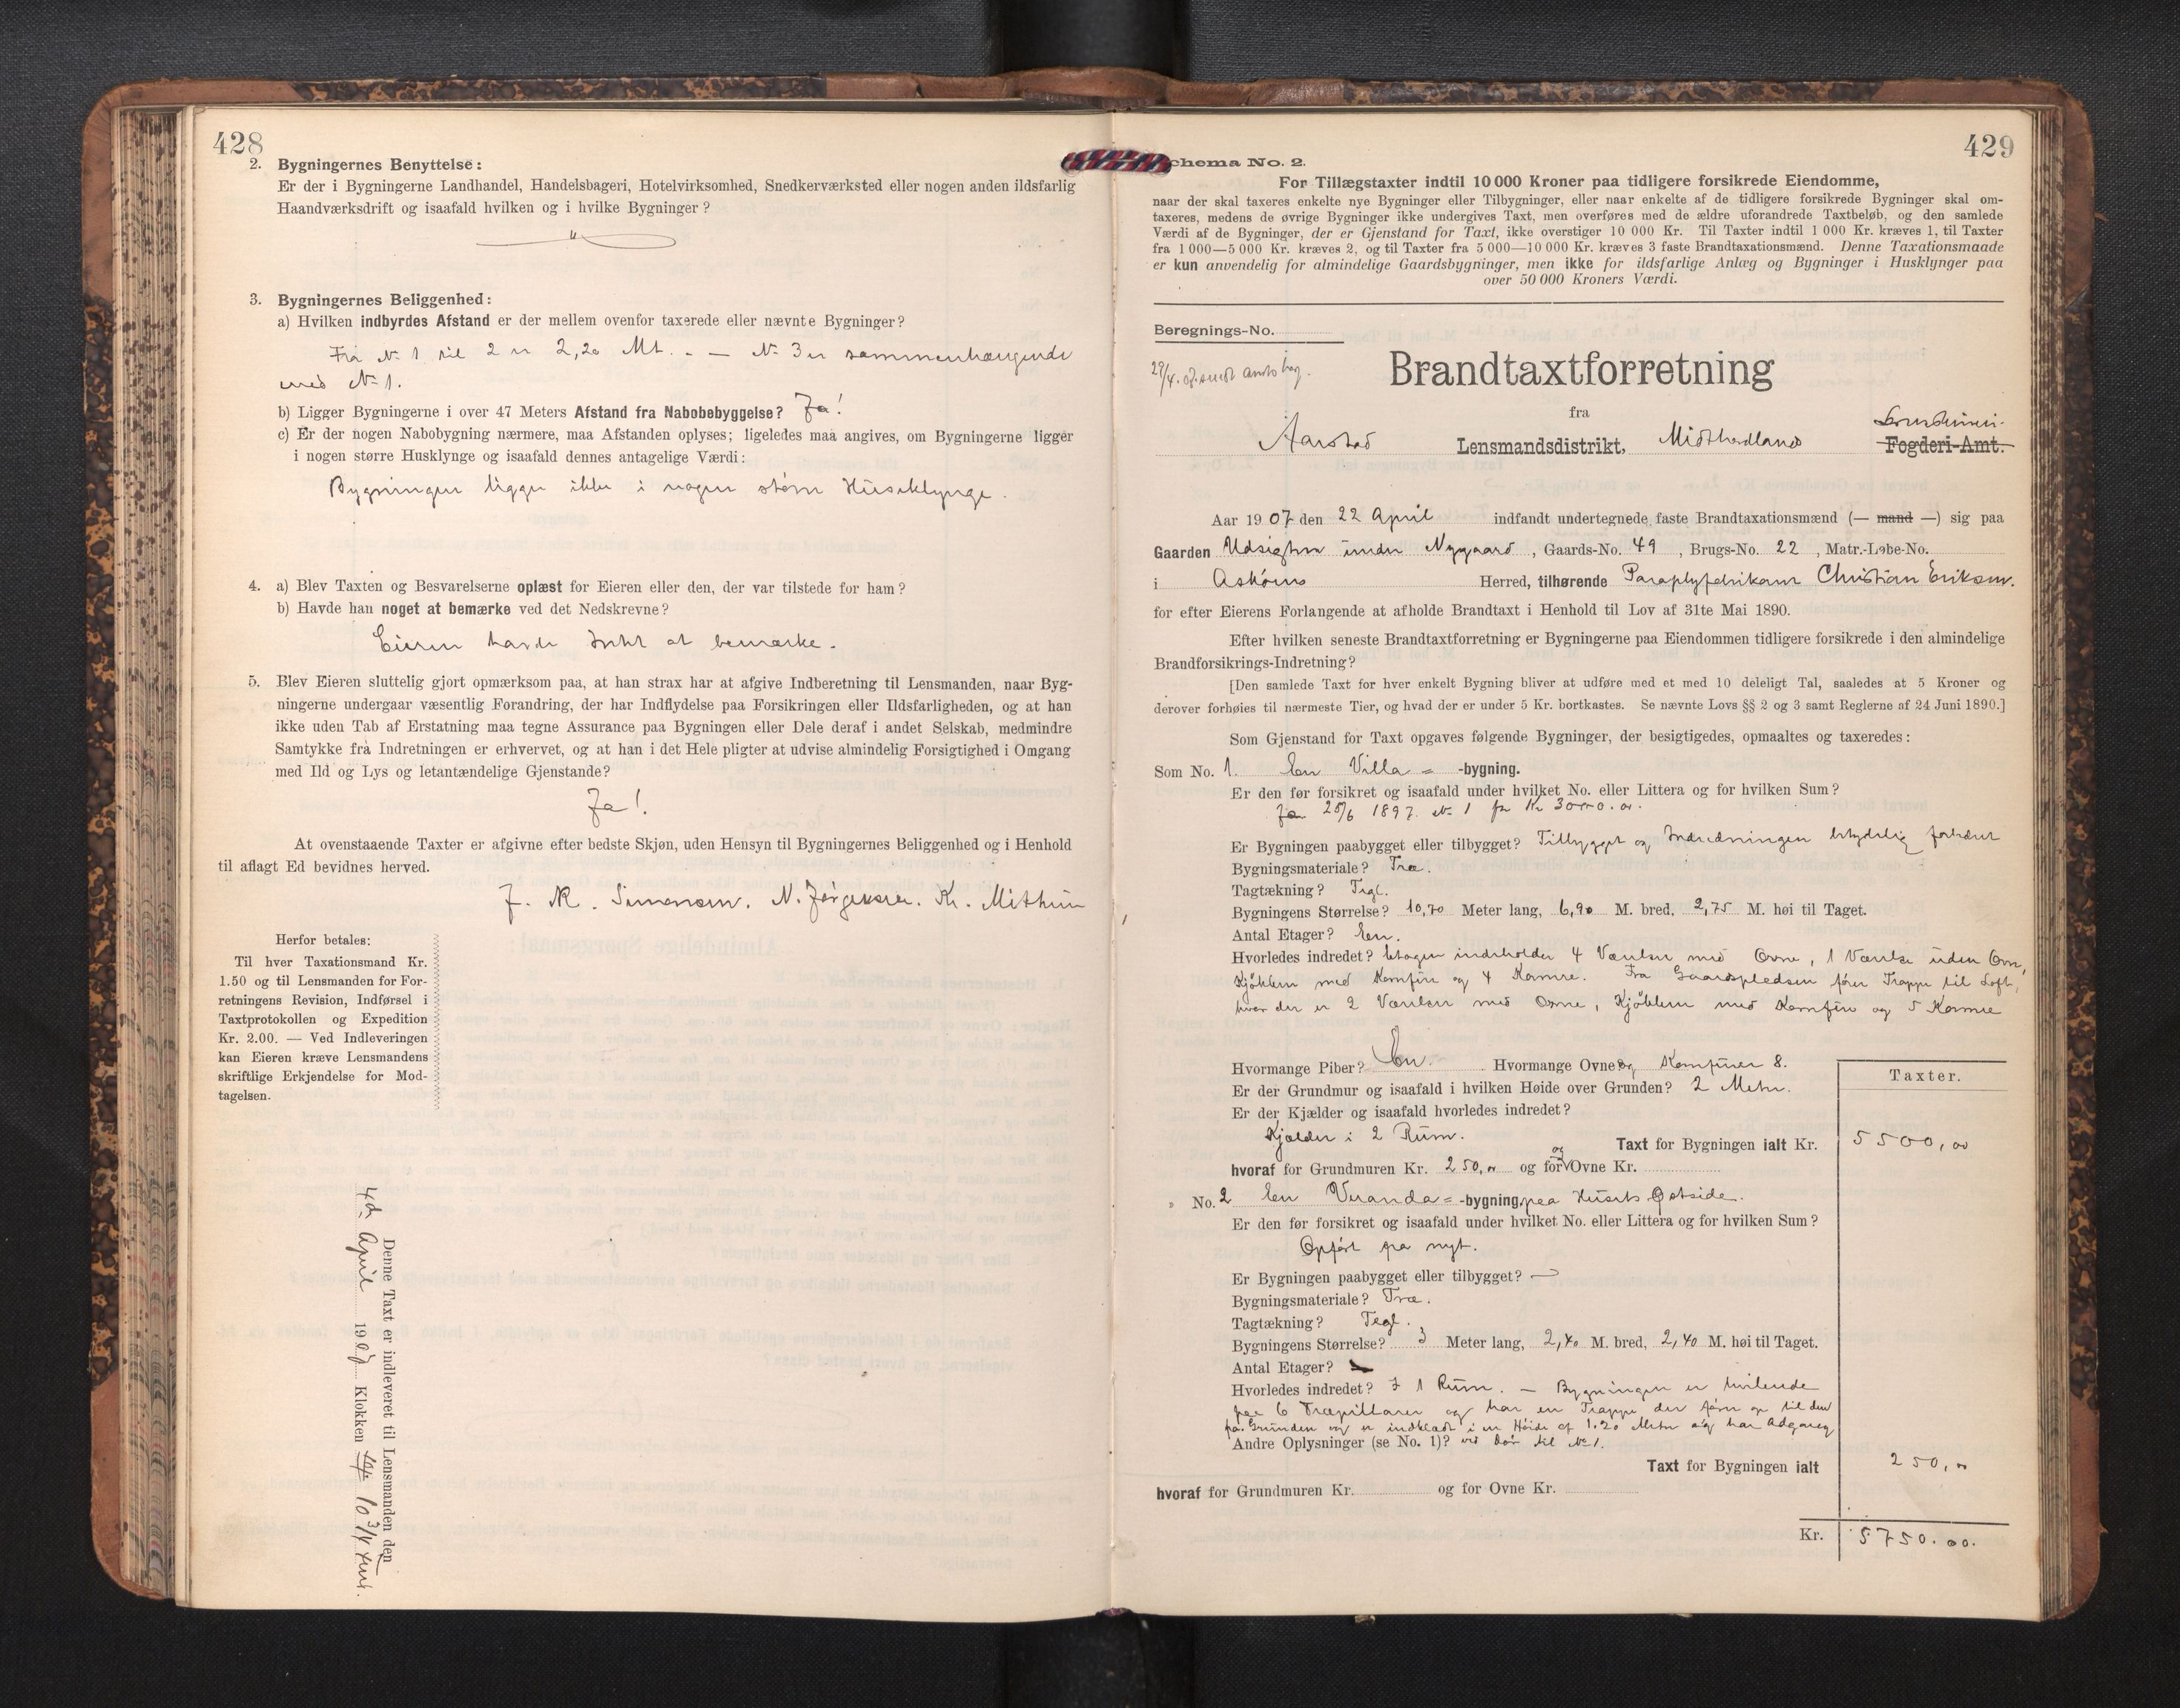 428
2. Bygningernes Benyttelse:
Er der i Bygningerne Landhandel, Handelsbageri, Hotelvirksomhed, Snedkerværksted eller nogen anden ildsfarlig
Haandværksdrift og isaafald hvilken og i hvilke Bygninger?
"
3. Bygningernes Beliggenhed:
a) Hvilken indbyrdes Afstand er der mellem ovenfor taxerede eller nævnte Bygninger?
Fra No 1 til 2 er 2,20 Mt. - — No 3 er sammenhængende
med No 1.
b) Ligger Bygningerne i over 47 Meters Afstand fra Nabobebyggelse? Ja!
c) Er der nogen Nabobygning nærmere, maa Afstanden oplyses; ligeledes maa angives, om Bygningerne ligger
i nogen større Husklynge og isaafald dennes antagelige Værdi:
Bygningen ligger ikke i nogen større Huseklynge.
4. a) Blev Taxten og Besvarelserne oplæst for Eieren eller den, der var tilstede for ham?
b) Havde han noget at bemærke ved det Nedskrevne?
Eieren havde Intet at bemærke.
5. Blev Eieren sluttelig gjort opmærksom paa, at han strax har at afgive Indberetning til Lensmanden, naar Byg-
ningerne undergaar væsentlig Forandring, der har Indflydelse paa Forsikringen eller Ildsfarligheden, og at han
ikke uden Tab af Erstatning maa tegne Assurance paa Bygningen eller Dele deraf i andet Selskab, medmindre
Samtykke fra Indretningen er erhvervet, og at han i det Hele pligter at udvise almindelig Forsigtighed i Omgang
med Ild og Lys og letantændelige Gjenstande?
Ja!
At ovenstaaende Taxter er afgivne efter bedste Skjøn, uden Hensyn til Bygningernes Beliggenhed og i Henhold
til aflagt Ed bevidnes herved.
J. M. Simonsen. N. Jørgensen. Kr. Mithun
Herfor betales:
Til hver Taxationsmand Kr.
1.50 og til Lensmanden for For-
retningens Revision, Indførsel i
Taxtprotokollen og Expedition
Kr. 2.00. — Ved Indleveringen
kan Eieren kræve Lensmandens
skriftlige Erkjendelse for Mod-
tagelsen.
Denne Taxt er indleveret til Lensmanden den
4de April 1907 Klokken 10 3/4 Form.
429
Schema No. 2.
For Tillægstaxter indtil 10 000 Kroner paa tidligere forsikrede Eiendomme,
naar der skal taxeres enkelte nye Bygninger eller Tilbygninger, eller naar enkelte af de tidligere forsikrede Bygninger skal om-
taxeres, medens de øvrige Bygninger ikke undergives Taxt, men overføres med de ældre uforandrede Taxtbeløb, og den samlede
Værdi af de Bygninger, der er Gjenstand for Taxt, ikke overstiger 10 000 Kr. Til Taxter indtil 1 000 Kr. kræves 1, til Taxter
fra 1 000—5 000 Kr. kræves 2, og til Taxter fra 5 000—10 000 Kr. kræves 3 faste Brandtaxationsmænd. Denne Taxationsmaade
er kun anvendelig for almindelige Gaardsbygninger, men ikke for ildsfarlige Anlæg og Bygninger i Husklynger paa
over 50 000 Kroners Værdi.
Beregnings-No.
29/4. 07 sendt
Brandtaxtforretning
fra
Aarstad Lensmandsdistrikt, Midthordlands Sorenskriveri.
Fogderi-Amt.
Aar 1907 den 22 April indfandt undertegnede faste Brandtaxationsmænd (— mand —) sig paa
Gaarden Udsigten under Nygaard, Gaards-No. 49, Brugs-No. 22, Matr.-Løbe-No.
i Askøens Herred, tilhørende Paraplyfabrikant Christian Eriksen.
for efter Eierens Forlangende at afholde Brandtaxt i Henhold til Lov af 31te Mai 1890.
Efter hvilken seneste Brandtaxtforretning er Bygningerne paa Eiendommen tidligere forsikrede i den almindelige
Brandforsikrings-Indretning?
[Den samlede Taxt for hver enkelt Bygning bliver at udføre med et med 10 deleligt Tal, saaledes at 5 Kroner og
derover forhøies til nærmeste Tier, og hvad der er under 5 Kr. bortkastes. Se nævnte Lovs §§ 2 og 3 samt Reglerne af 24 Juni 1890.]
Som Gjenstand for Taxt opgaves følgende Bygninger, der besigtigedes, opmaaltes og taxeredes:
Som No. 1. En Villa = -bygning.
Er den før forsikret og isaafald under hvilket No. eller Littera og for hvilken Sum?
Ja 25/6 1897. No 1 for Kr 3000.00.
Er Bygningen paabygget eller tilbygget? Tilbygget og Indredningen betydelig forbedret
Bygningsmateriale? Træ.
Tagtækning? Tegl.
Bygningens Størrelse? 10,70 Meter lang, 6,90 M. bred, 2,75 M. høi til Taget.
Antal Etager? En.
Hvorledes indredet? Etagen indeholder 4 Værelser med Ovne, 1 Værelse uden Ovn,
Kjøkken med Komfur og 4 Kamre. Fra Gaardspladsen fører Trappe til Loft,
hvor der er 2 Værelser med Ovne, Kjøkken med Komfur og 5 Kamre
Hvormange Piber? En. Hvormange Ovne og Komfurer 8.
Er der Grundmur og isaafald i hvilken Høide over Grunden? 2 Meter.
Er der Kjælder og isaafald hvorledes indredet?
Kjælder i 2 Rum.
Taxter.
Taxt for Bygningen ialt Kr. 5500,00
hvoraf for Grundmuren Kr. 250,00 og for og Ovne Kr.
" No. 2 En Veranda = -bygning, paa Husets Østside.
Er den før forsikret og isaafald under hvilket No. eller Littera og for hvilken Sum?
Opført fra nyt.
Er Bygningen paabygget eller tilbygget? —
Bygningsmateriale? Træ.
Tagtækning? Tegl.
Bygningens Størrelse? 3 Meter lang, 2,40 M. bred, 2,40 M. høi til Taget.
Antal Etager?
Hvorledes indredet? I 1 Rum. — Bygningen er hvilende
paa 6 Træpillarer og har en Trappe der fører op til den
fra Grunden og er indklædt i en Høide af 1.20 Meter og har Adgang
Andre Oplysninger (se No. 1)? ved Dør til No 1.
Taxt for Bygningen ialt 250,00
hvoraf for Grundmuren Kr. og for Ovne Kr.
Kr. 5750.00.